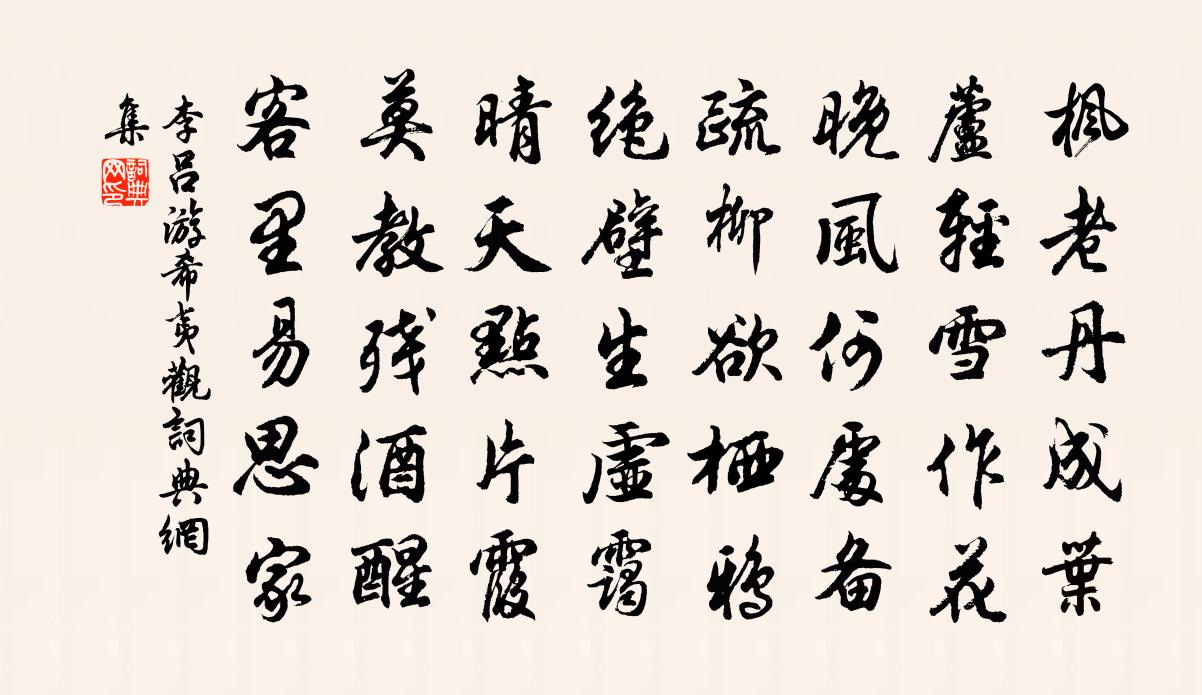 枫老丹成葉
蘆輕雪作花
晚風何處备
疏柳欲栖鸦
绝壁生虚靄
晴天點片霞
莫教残酒醒
客里易思家
李吕游希夷觀詞典網
集
詞典
网印